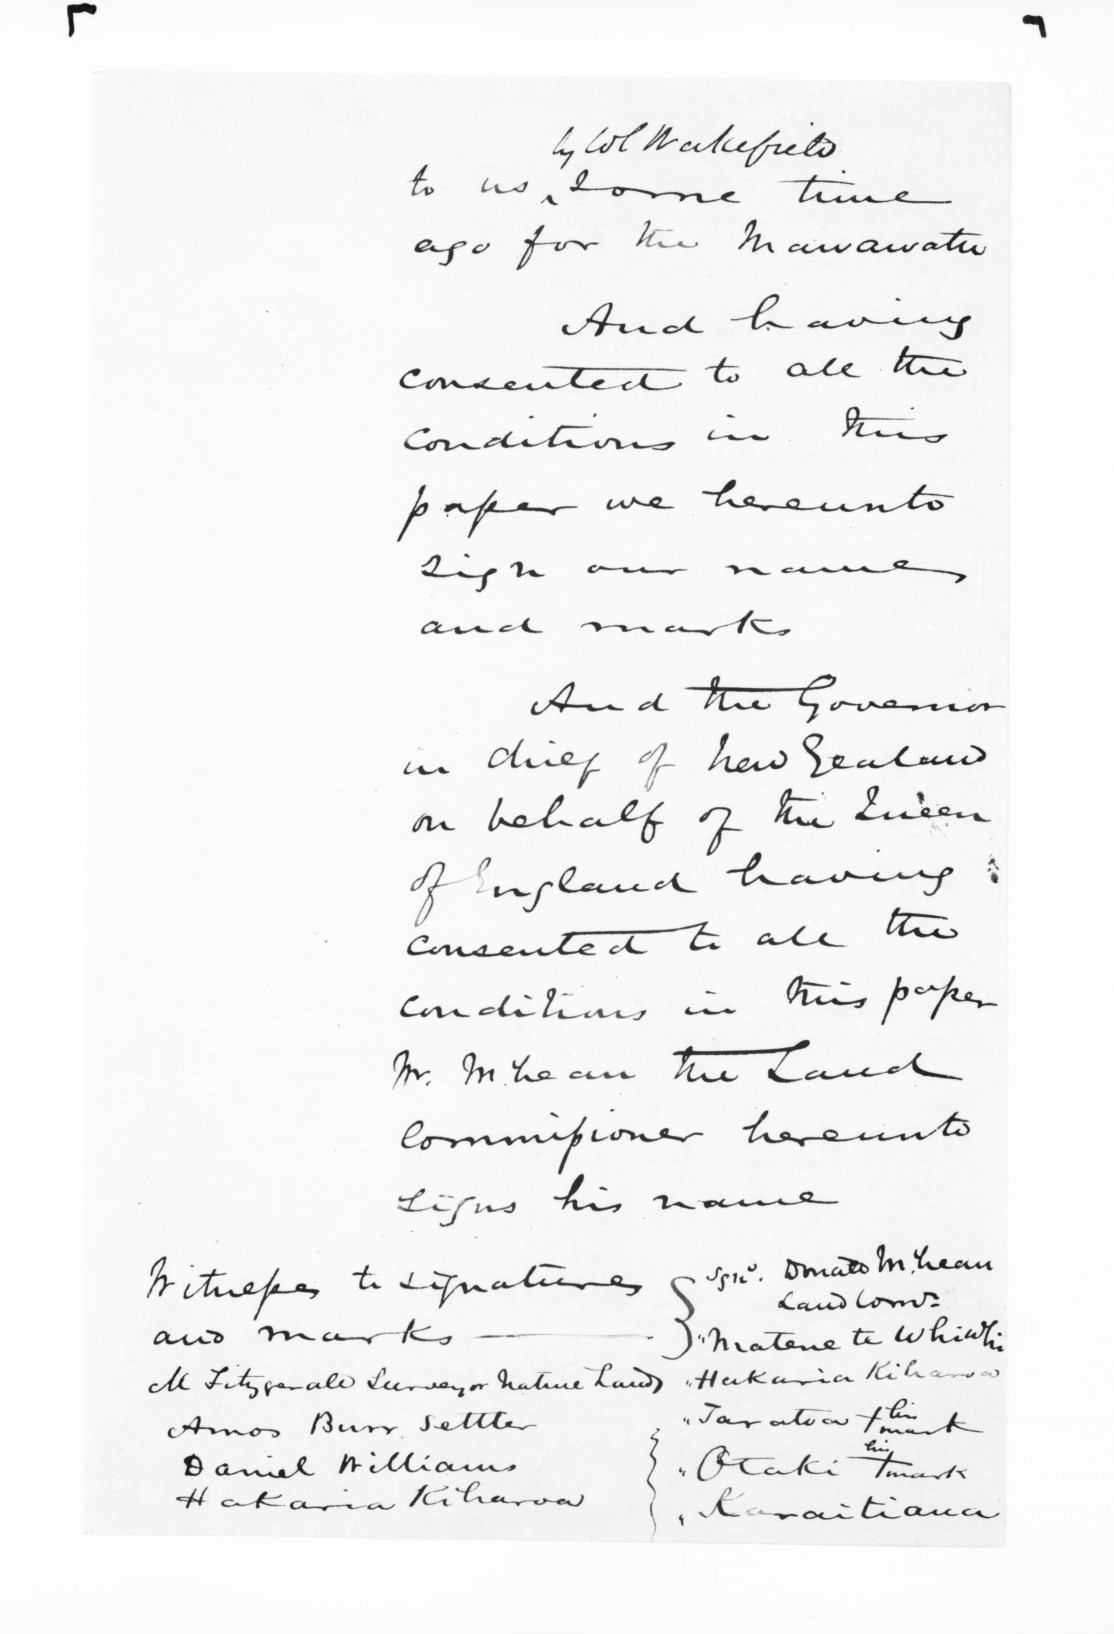 by Col Wakefield
to us ‸ some time
ago for the Manawatu
And having
consented to all the
conditions in this
paper we hereunto
sign our names
and marks
And the Governor
in chief of New Zealand
on behalf of the Queen
of England having
consented to all the
conditions in this paper
Mr. McLean the Land
Commissioner hereunto
signs his name
Witnesses to signatures
and marks
M Fitzgerald Surveyor Native Lands
Amos Burr. Settler
Daniel Williams
Hakaria Kiharoa
Sgnd. Donald McLean
Land Comr.
" Matene te Whiwhi
" Hakaria Kiharoa
" Taratoa + his mark
" Otaki + his mark
" Karaitiana